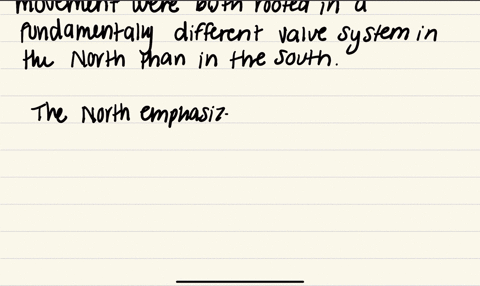 movement were both rooted in a
fundamentally different value system in
the North than in the South.
The North emphasiz